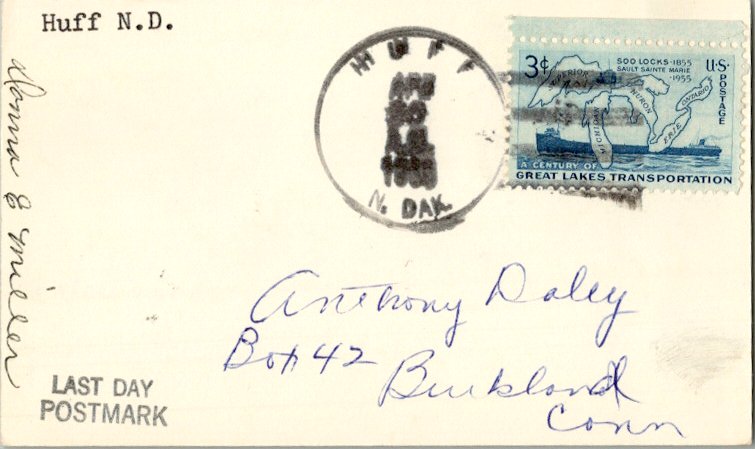 Huff N.D.
Donna E Miller
HUFF
APR
A.M.
N. DAK.
3¢
SOO LOCKS·1855
SAULT SAINTE MARIE
1955
U.S. POSTAGE
SUPERIOR
HURON
MICHIGAN
ERIE
ONTARIO
A CENTURY OF
GREAT LAKES TRANSPORTATION
Anthony Daley
Box 42
Conn
LAST DAY
POSTMARK